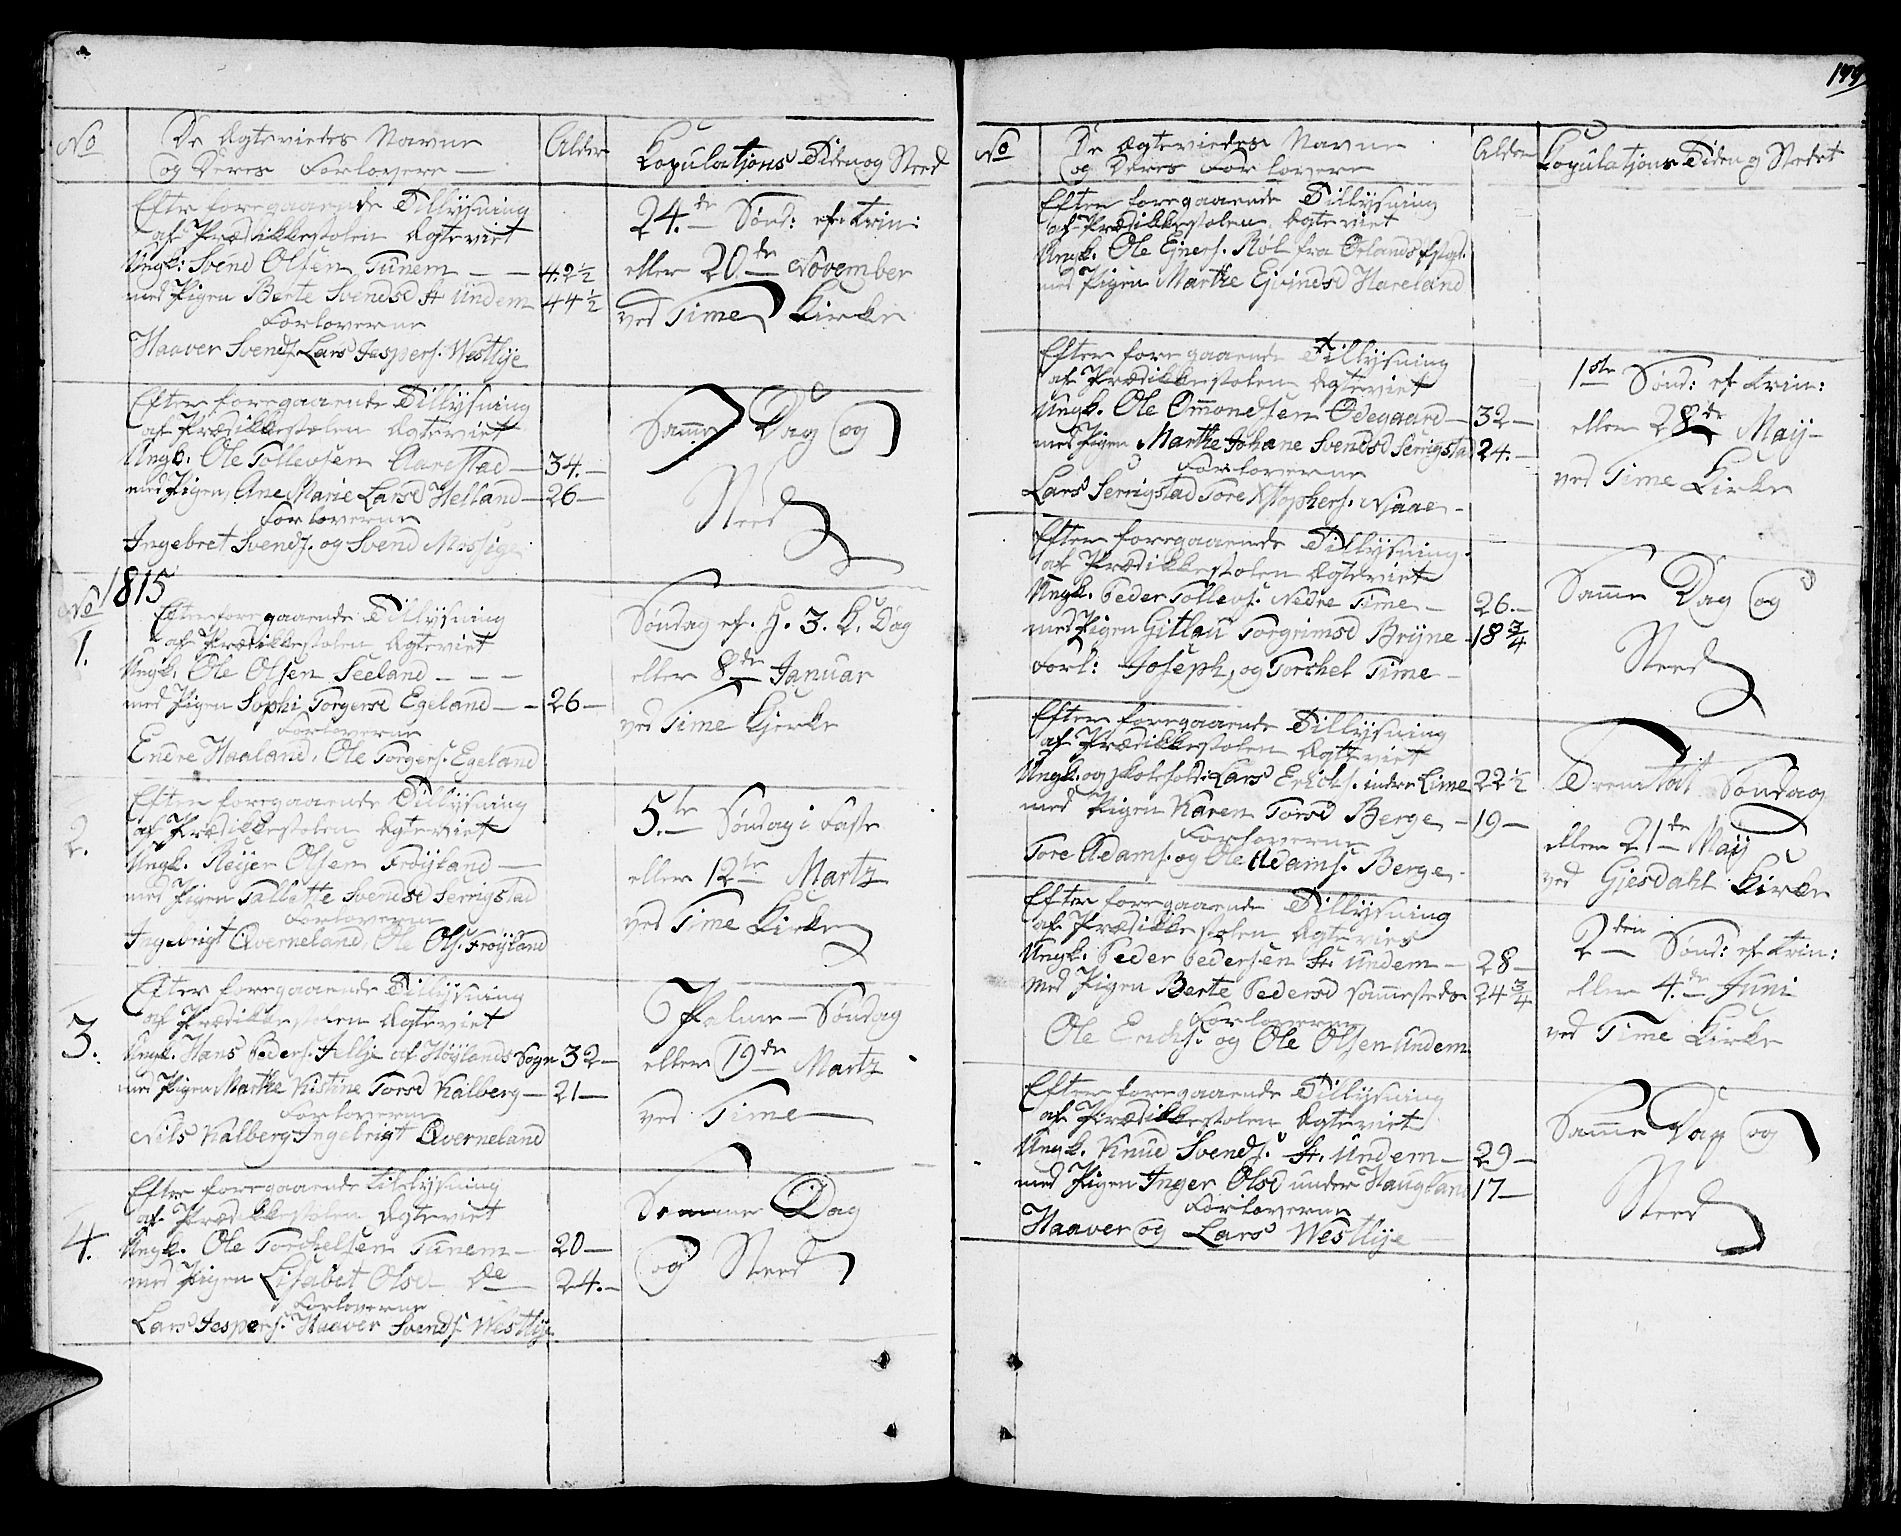 No
De Ægteviedes Navne
og Deres Forlovere
Alder
Kopulations Tiden og Sted
Efter foregaaende Tillysning
af Prædikkestolen Ægteviet
Ungk: Svend Olsen Tunem - - 42½
med Pigen Berte Svendsd St Undem 44½
Forloverne
Haaver Svends. Lars Jespers. Westlye
24.de Sønd: ef. Trin:
eller 20.de November
ved Time Kirke
Efter foregaaende Tillysning
af Prædikkestolen Ægteviet
Ungk. Ole Tollevsen Aarestad - 34.-
med Pigen Ane Marie Larsd Helland - 26-
Forloverne
Ingebret Svends. og Svend Mossige
Samme Dag og
Sted
1815
No
1.
Efter foregaaende Tillysning
af Prædikkestolen Ægteviet
Ungk. Ole Olsen Seeland - - -
med Pigen Sophi Torgersd Egeland - - 26-
Forloverne
Endre Haaland. Ole Torgers. Egeland
Søndag ef. H. 3. K. Dag
eller 8de Januar
ved Time Kjerke
2.
Efter foregaaende Tillysning
af Prædikkestolen Ægteviet
Ungk. Reyer Olsen Frøyland -
med Pigen Tallette Svendsd Serrigstad
Forloverne
Ingebrigt Qverneland, Ole Ols. Frøyland
5.te Søndag i Faste
eller 12te Martz
ved Time Kirke
3.
Efter foregaaende Tillysning
af Prædikkestolen Ægteviet
Ungk. Hans Peders. af Høylands Sogn 32-
med Pigen Marthe Kistine Torsd Kalberg - 21-
Forloverne
Nils Kalberg Ingebrigt Qverneland
Palme-Søndag
eller 19de Martz
ved Time -
4.
Efter foregaaende Tillysning
af Prædikkestolen Ægteviet
Ungk. Ole Torchelsen Tunem - 20-
med Pigen Lisabet Olsd De 24.-
Forloverne
Lars Jespers. Haaver Svends. Westlye
Samme Dag
og Sted
No
De Ægteviedes Navne
og Deres Forlovere
Alder
Kopulations Tiden og Stedet
Efter foregaaende Tillysning
af Prædikkestolen Ægteviet
Ungk. Ole Ejners. Røl fra Ørlands
med Pigen Marthe Ejvindsd Hareland
Efter foregaaende Tillysning
af Prædikkestolen Ægteviet
Ungk. Ole Ommondsen Ødegaard - 32-
med Pigen Marthe Johane Svendsd Serrigstad 24.-
Forloverne
Lars Serrigstad Tore Njaae -
1ste Sønd: ef Trin:
eller 28de May -
ved Time Kirke
Efter foregaaende Tillysning
af Prædikkestolen Ægteviet
Ungk. Peder Tollevs. Nedre Time - 26.-
med Pigen Gitlau Torgrimsd Bryne - 18¾
Forl: Joseph, og Torchel Time -
Samme Dag og
Sted
Efter foregaaende Tillysning
af Prædikkestolen Ægteviet
Ungk. og Lars Erichs. indre Lime 22½
med Pigen Karen Torsd Berge - 19-
Forloverne
Tore Adams. og Ole Adams. Berge
Trenitat Søndag
eller 21de May
ved Gjesdahl Kirke
Efter foregaaende Tillysning
af Prædikkestolen Ægteviet
Ungk. Peder Pedersen St. Undem - 28-
med Pigen Berte Pedersd Sammesteds 24¾
Forloverne
Ole Erichs. og Ole Olsen Undem
2den Sønd: ef Trin:
eller 4.de Juni
ved Time Kirke
Efter foregaaende Tillysning
af Prædikkestolen Ægteviet
Ungk. Knud Svends. St. Undem - 29-
med Pigen Inger Olsd under Haugland 17-
Forloverne
Haaver og Lars Westlye
Samme Dag og
Sted